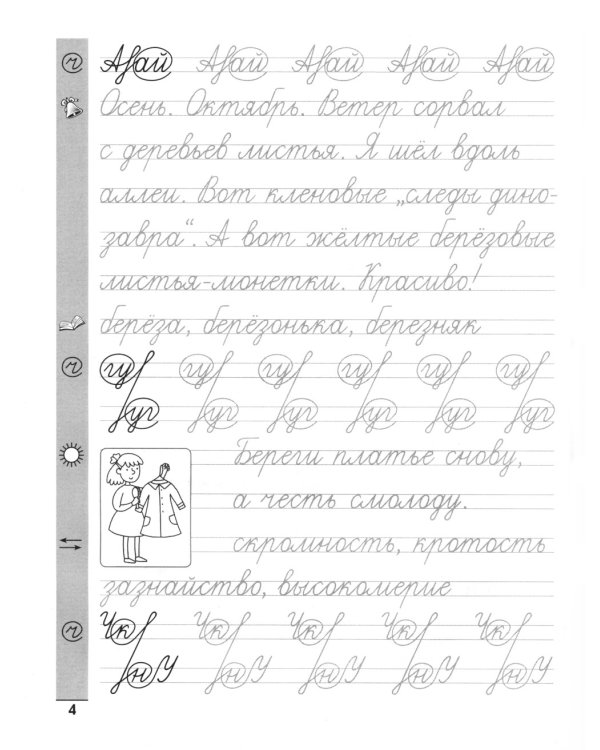 Осень. Октябрь. Ветер сорвал
с деревьев листья. Я шёл вдоль
аллеи. Вот кленовые „следы дино-
завра“. А вот жёлтые берёзовые
листья-монетки. Красиво!
берёза, берёзонька, березняк
гу гу гу гу гу гу
уг уг уг уг уг уг
Береги платье снову,
а честь смолоду.
скромность, кротость
зазнайство, высокомерие
4